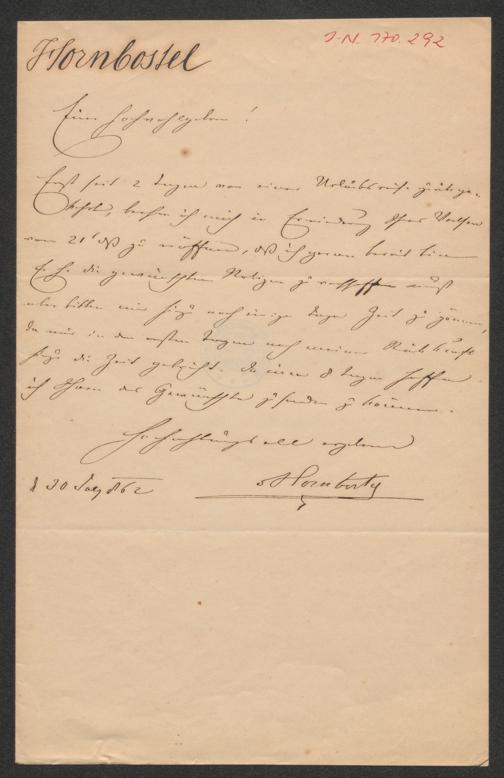 Hornbostel
I.N. 170.292
Euer Hochwohlgeboren!
Erst seit 2 Tagen von einer Urlaubsreise zurückge-
kehrt, beehre ich mich in Erwiderung Ihres Werthen
vom 21t dß zu eröffnen, daß ich gerne bereit bin
E. H. die gewünschten Notizen zu verschaffen muß
aber bitten mir hiezu noch einige Tage Zeit zu gönnen,
da mir in den ersten Tagen nach meiner Rückkunft
hiezu die Zeit gebricht. In circa 8 Tagen hoffe
ich Ihnen das Gewünschte zusenden zu können.
Hochachtungsvoll ergebener
d 30 July 862
Hornbostel